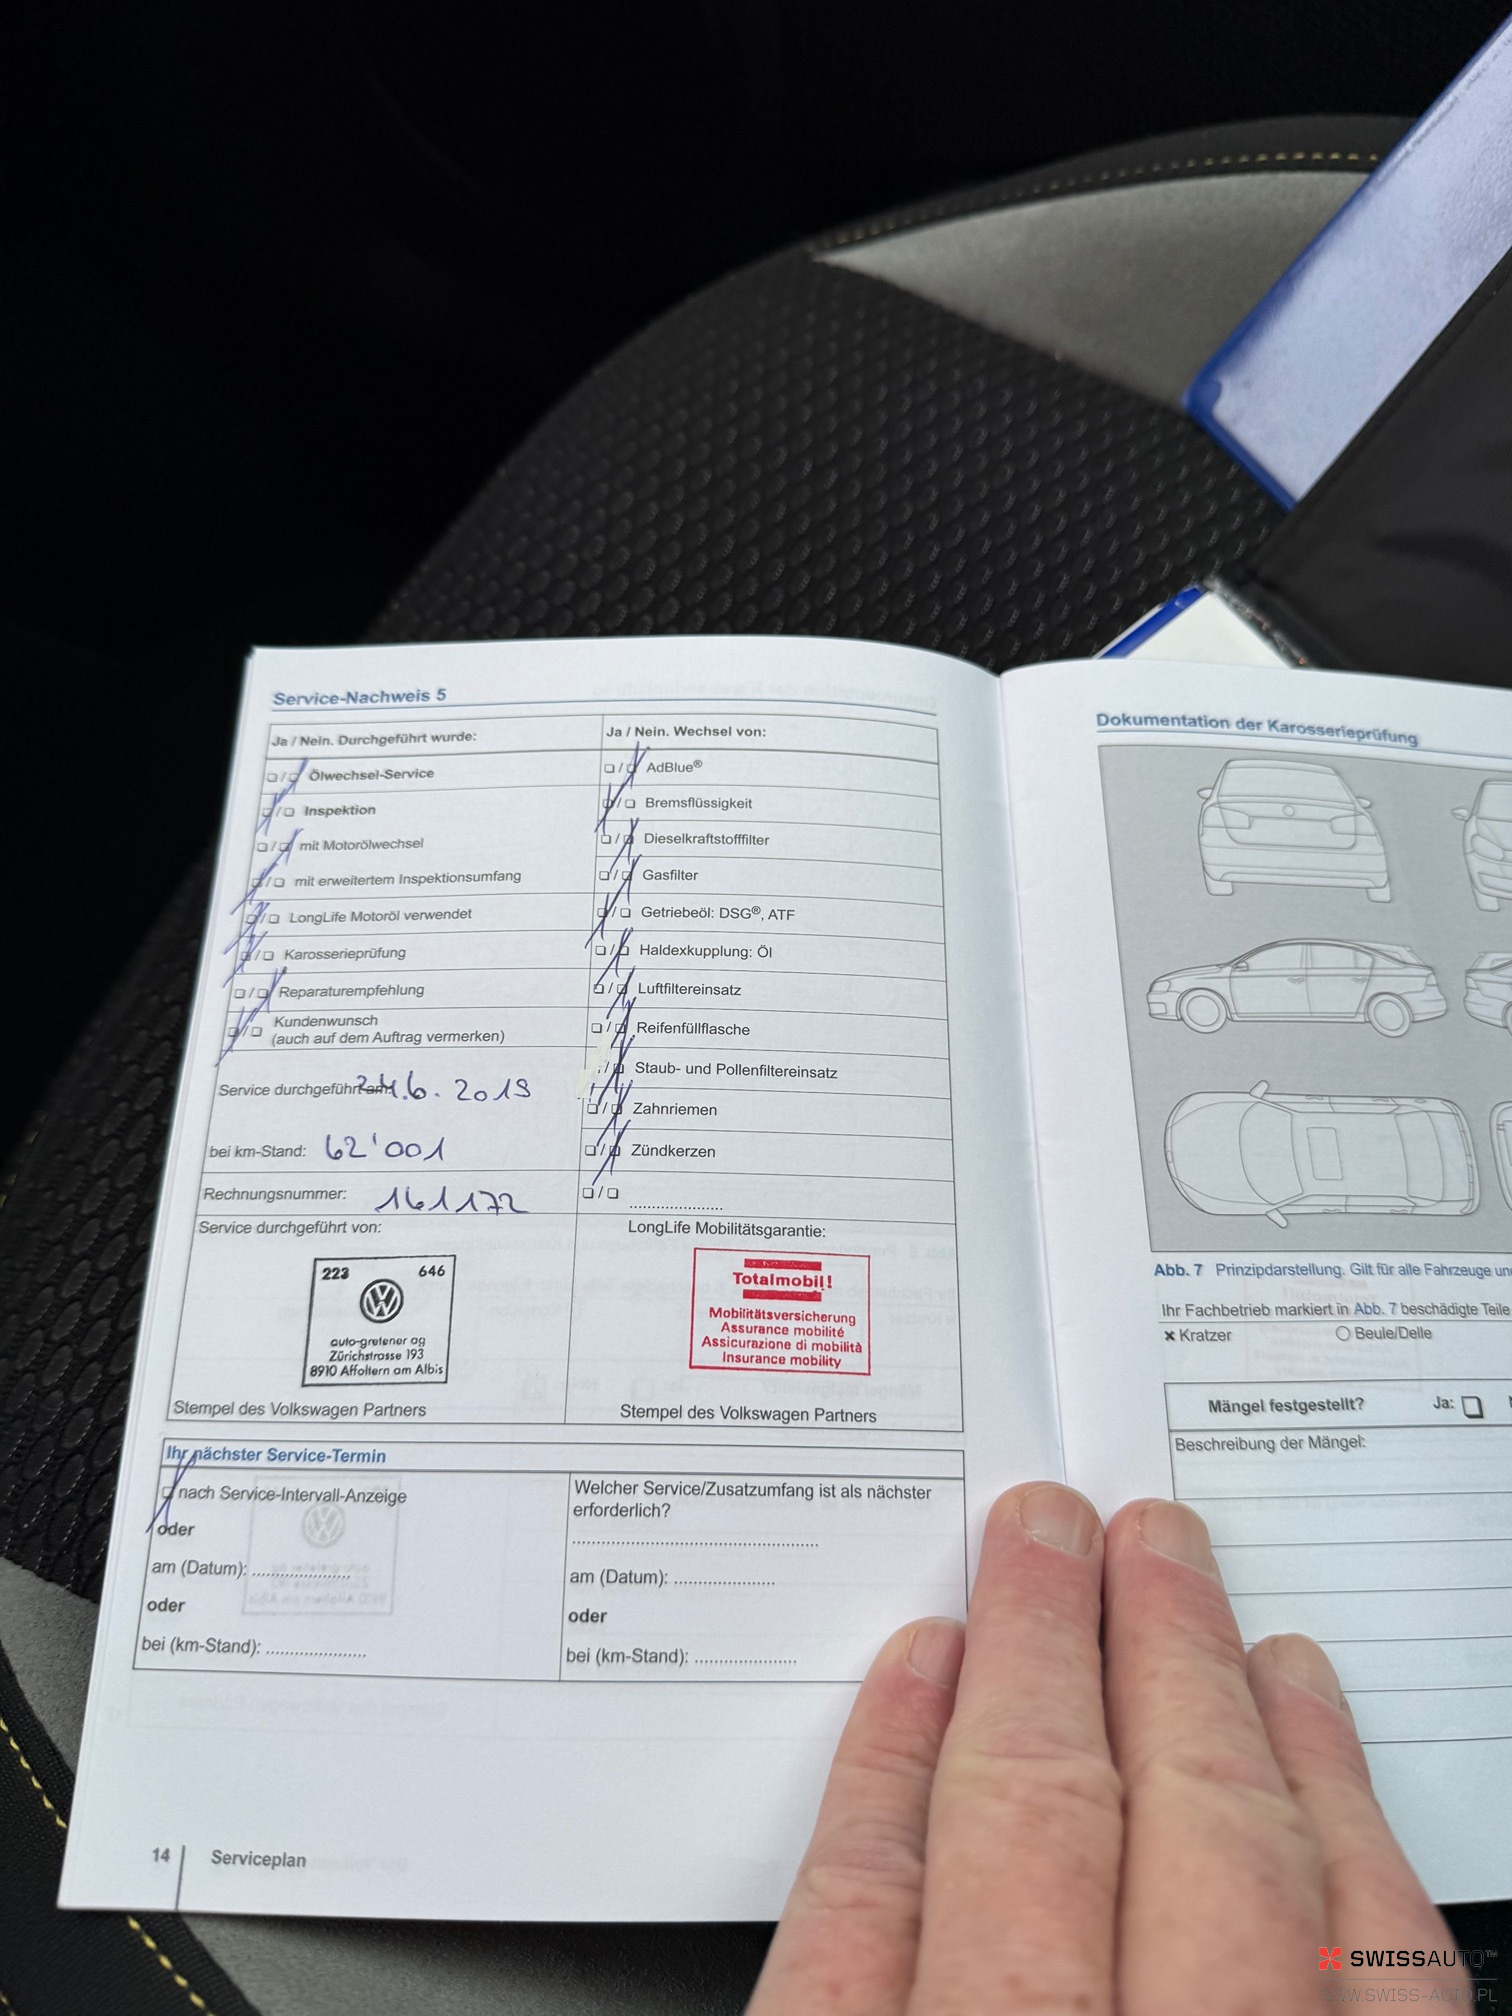 Service-Nachweis 5
Ja / Nein. Durchgeführt wurde:
Ölwechsel-Service
Inspektion
mit Motorölwechsel
mit erweitertem Inspektionsumfang
LongLife Motoröl verwendet
Karosserieprüfung
Reparaturempfehlung
Kundenwunsch
(auch auf dem Auftrag vermerken)
Service durchgeführt am: 24.6.2019
bei km-Stand: 62'001
Rechnungsnummer: 161172
Ja / Nein. Wechsel von:
AdBlue®
Bremsflüssigkeit
Dieselkraftstofffilter
Gasfilter
Getriebeöl: DSG®, ATF
Haldexkupplung: Öl
Luftfiltereinsatz
Reifenfüllflasche
Staub- und Pollenfiltereinsatz
Zahnriemen
Zündkerzen
....................
Service durchgeführt von:
223 646
auto-gretener ag
Zürichstrasse 193
8910 Affoltern am Albis
Stempel des Volkswagen Partners
LongLife Mobilitätsgarantie:
Totalmobil!
Mobilitätsversicherung
Assurance mobilité
Assicurazione di mobilità
Insurance mobility
Stempel des Volkswagen Partners
Ihr nächster Service-Termin
nach Service-Intervall-Anzeige
oder
am (Datum): ....................
oder
bei (km-Stand): ....................
Welcher Service/Zusatzumfang ist als nächster
erforderlich?
am (Datum): ....................
oder
bei (km-Stand): ....................
14 Serviceplan
Dokumentation der Karosserieprüfung
Abb. 7 Prinzipdarstellung. Gilt für alle Fahrzeuge
Ihr Fachbetrieb markiert in Abb. 7 beschädigte Teile
× Kratzer ○ Beule/Delle
Mängel festgestellt? Ja:
Beschreibung der Mängel:
SWISSAUTO™
WWW.SWISS-AUTO.PL